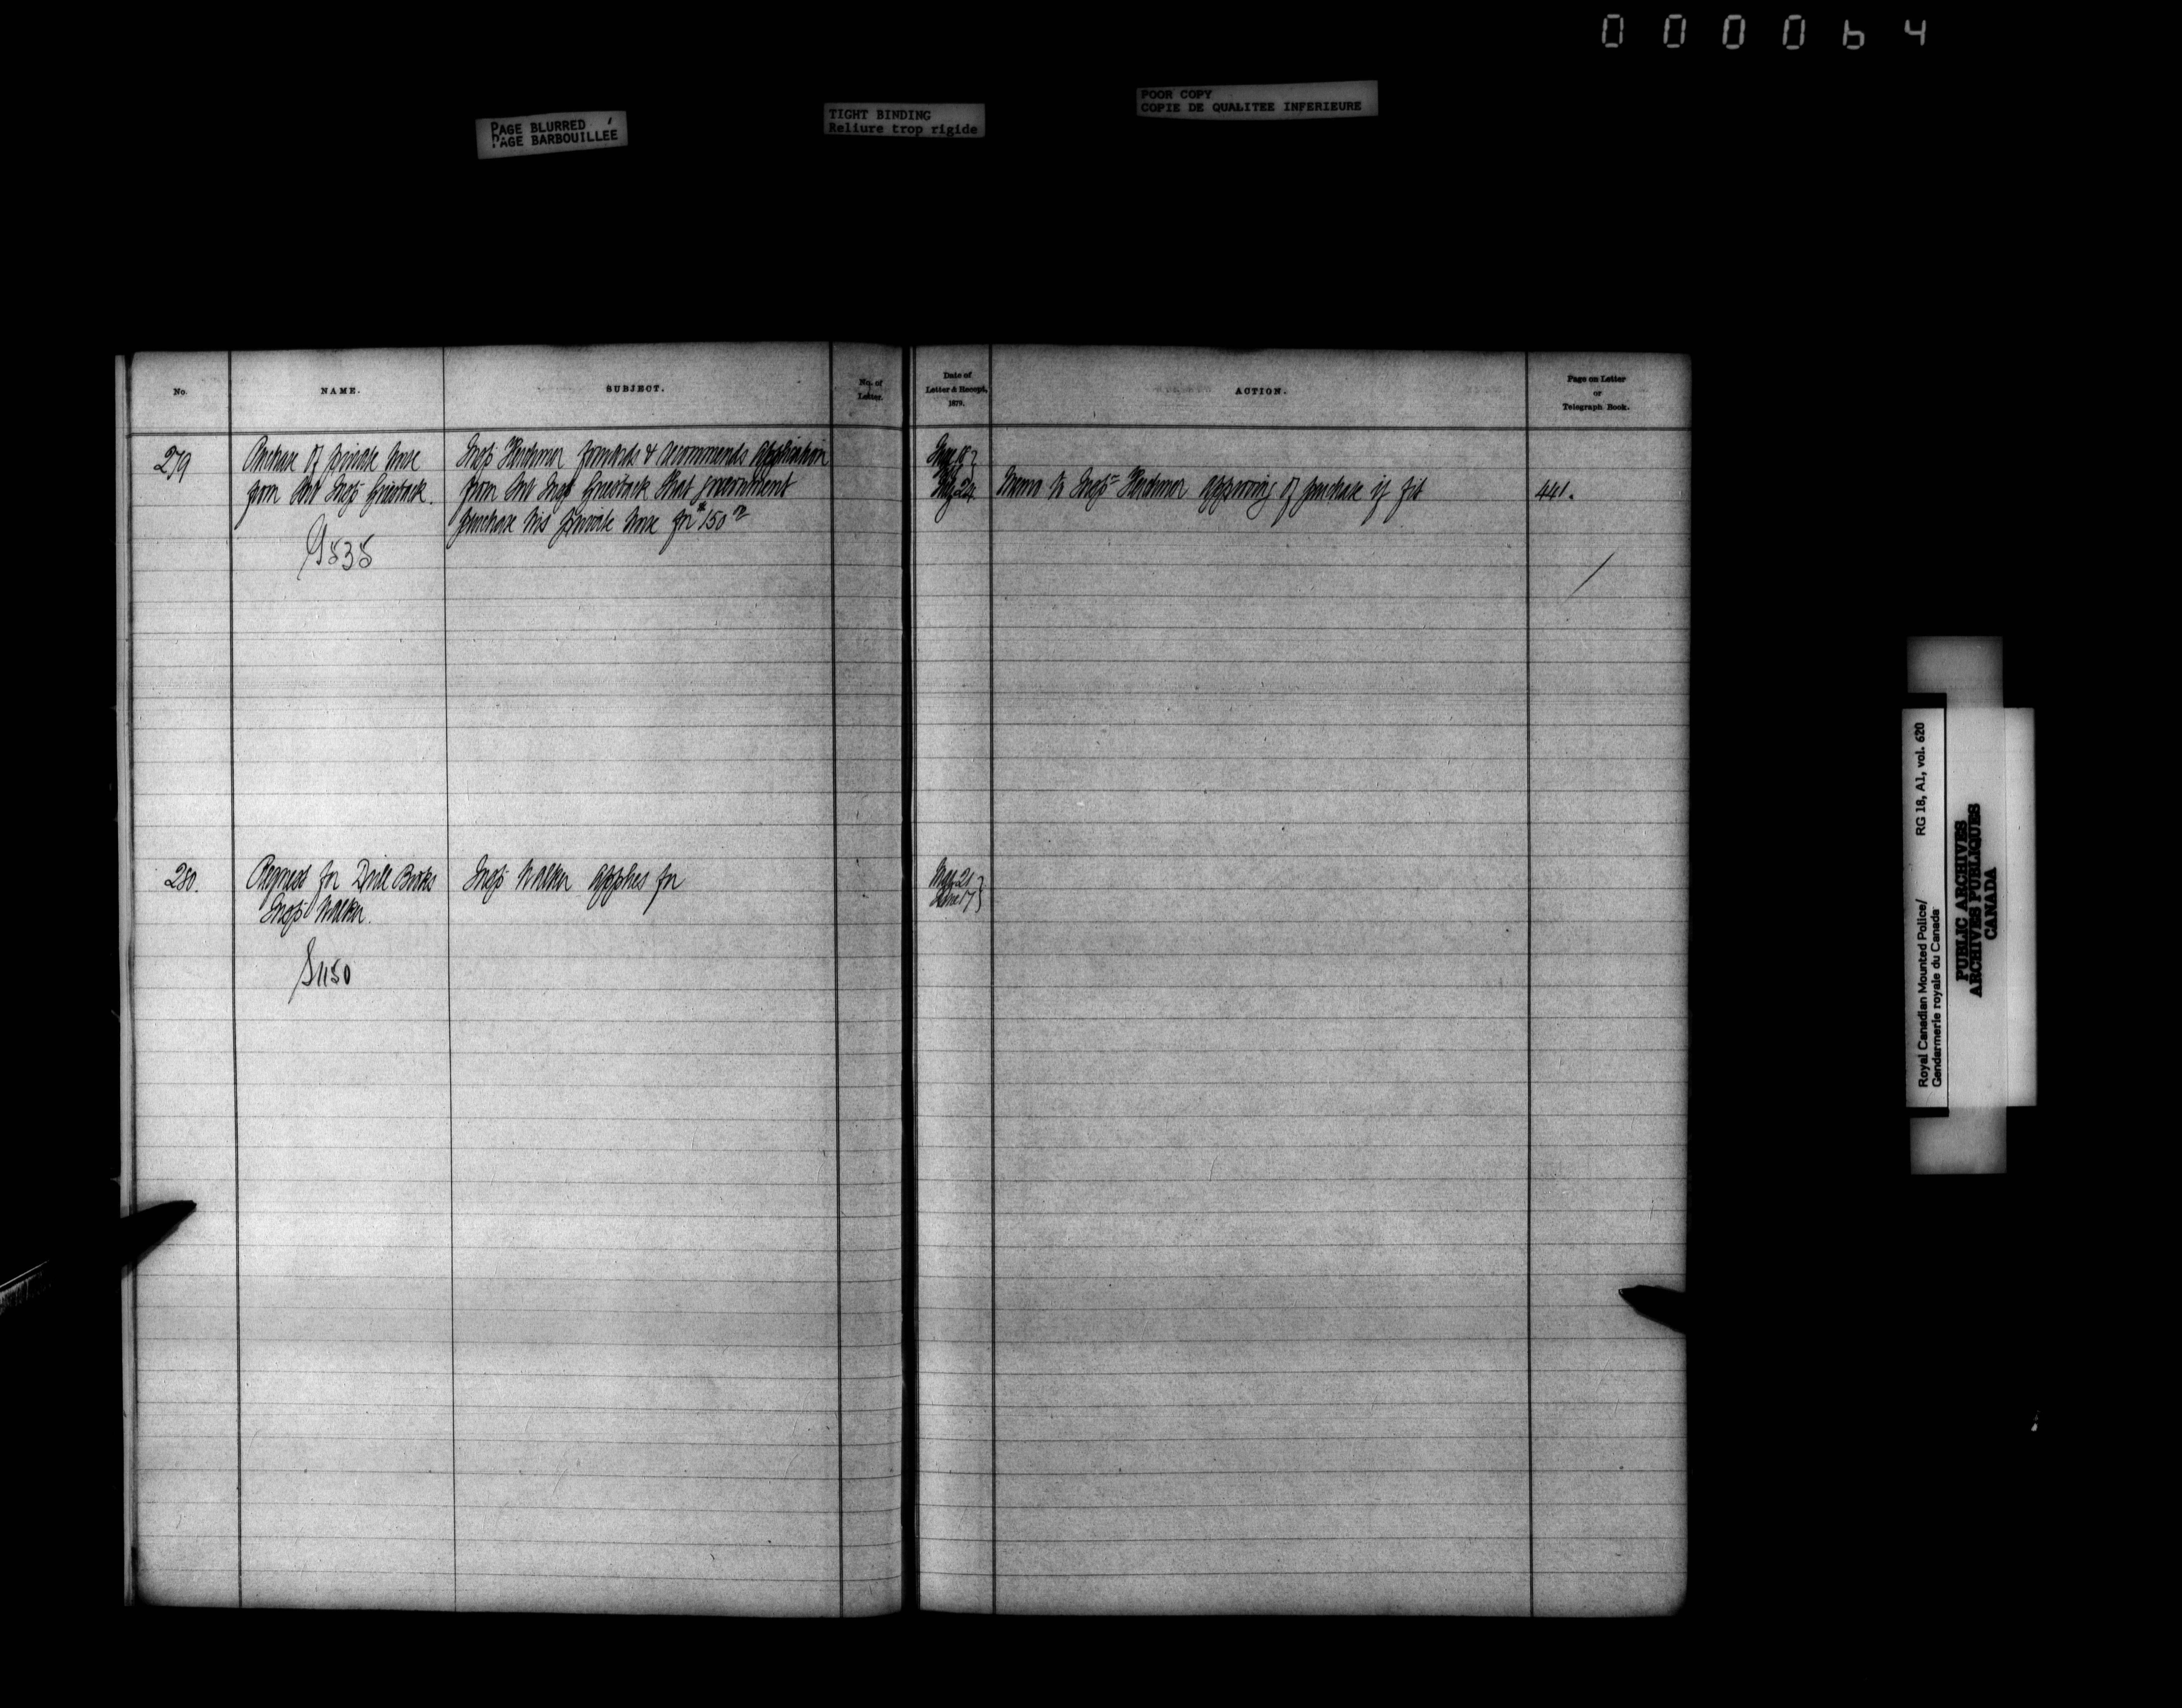 000064
PAGE BLURRED
PAGE BARBOUILLÉE
TIGHT BINDING
Reliure trop rigide
POOR COPY
COPIE DE QUALITEE INFERIEURE
No.
NAME.
SUBJECT.
No. of
Letter.
Date of
Letter & Receipt,
1879.
ACTION.
Page on Letter
or
Telegraph Book.
279
Purchase of private horse
from Sub Insp Griesbach.
Insp Herchmer forwards & recommends application
from Sub Insp Griesbach that government
purchase his private horse for $150
May 24
Memo to Insp Herchmer approving of purchase if fit
441.
280.
Request for Drill Books
Insp Walker.
Insp Walker applies for
May 21
June 17
1150
Royal Canadian Mounted Police/ RG 18, A1, vol. 620
Gendarmerie royale du Canada
PUBLIC ARCHIVES
ARCHIVES PUBLIQUES
CANADA